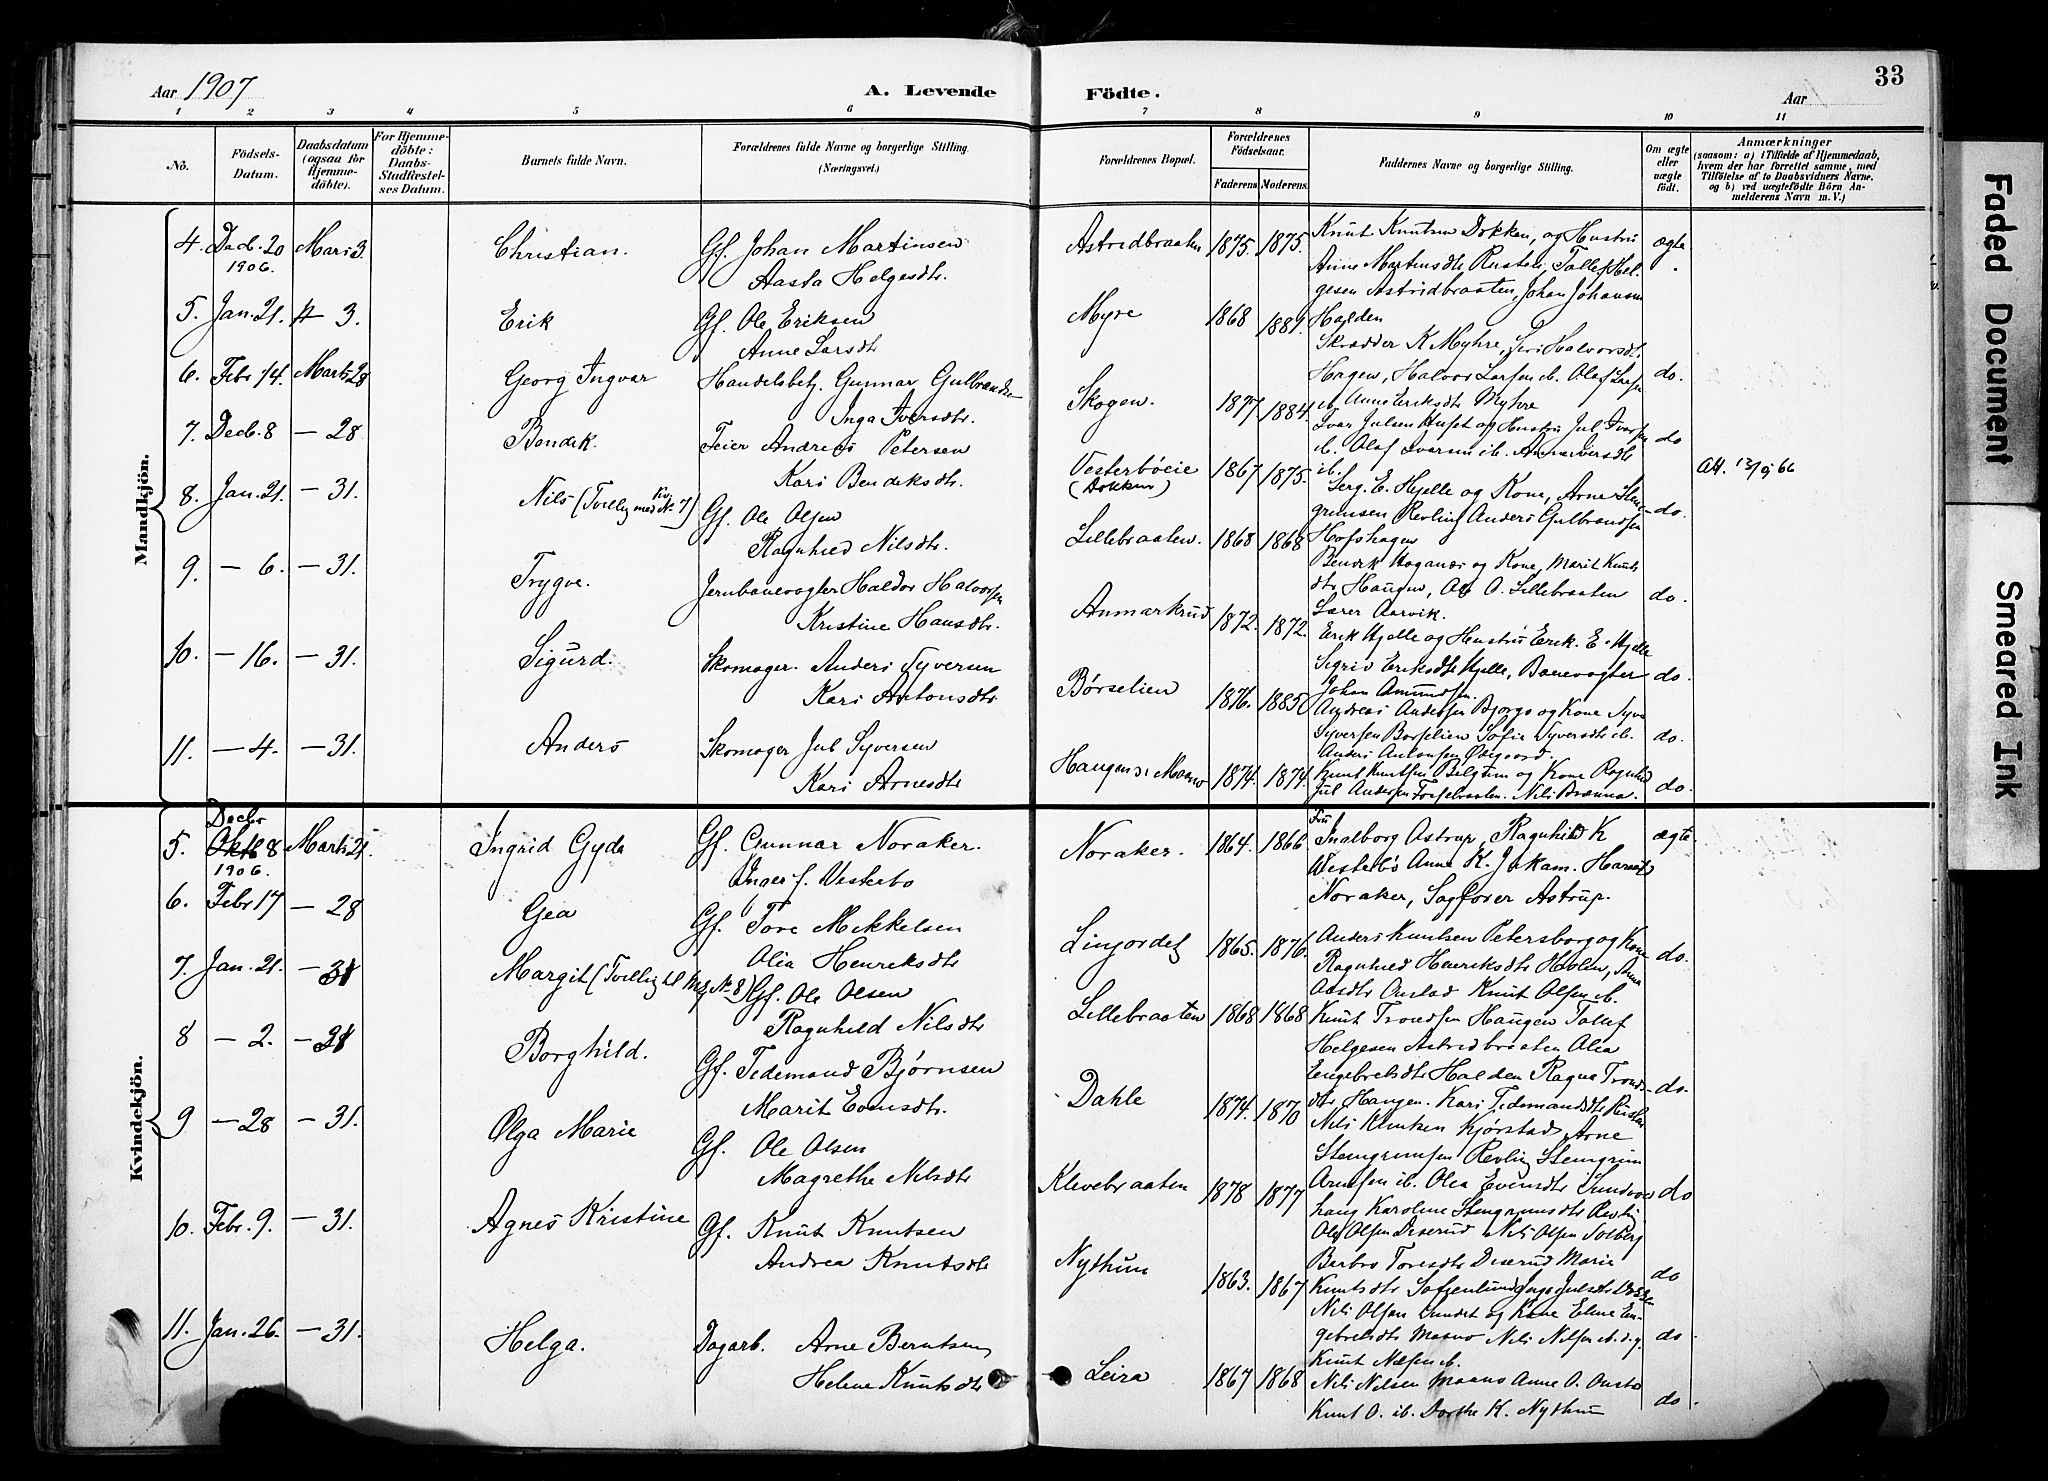 Aar 1907
A. Levende
Födte.
Aar
33
1 2 3 4 5 6 7 8 9 10 11
No.
Födsels-Datum.
Daabsdatum (ogsaa for Hjemmedöbte).
For Hjemmedöbte: Daabs-Stadfæstelses Datum.
Barnets fulde Navn.
Forældrenes fulde Navne og borgerlige Stilling. (Næringsvei.)
Forældrenes Bopæl.
Forældrenes Födselsaar.
Faderens. Moderens.
Faddernes Navne og borgerlige Stilling.
Om ægte eller uægte födt.
Anmærkninger
(saasom: a) i Tilfælde af Hjemmedaab, hvem der har forrettet samme, med Tilföielse af to Daabsvidners Navne, og b) ved uægtefödte Börn Anmelderens Navn m. V.)
Mandkjön.
4. Decb. 20 1906. Marts 3. Christian. Gf. Johan Martinsen
Aasta Helgesdtr. Astridbraaten 1875. 1875. ægte
Knut Knutsen Dokken, og Hustru
Anne Martinsdtr Rusten, Tollef Hel-
gesen Astridbraaten, Johan Johansen
Halden
5. Jan. 21. 3. Erik Gf. Ole Eriksen
Anne Larsdtr Myre 1868 1881. do.
Skrædder K Myhre, Siri Halvorsdtr.
Hagen, Halvor Larsen ib. Olaf Larsen
ib. Anne Eriksdtr Myhre
6. Febr 14. Marts 28 Georg Ingvar Handelsbetj. Gunnar Gulbrandsen
Inga Iversdtr. Skogen. 1877 1884. do
Ivar Julsen Huset og Hustru Jul Ivarsen
ib. Olaf Ivarsen ib. Anna Iversdtr
ib.
7. Decb. 8 — 28 Bendik. Feier Andreas Petersen
Kari Bendiksdtr. Vesterböeie (Dokken) 1867 1875. do.
Serg. E. Hjelle og Kone, Arne Sten-
grimsen Revling Anders Gulbrandsen
Hofshagen
8. Jan. 21. — 31. Nils (Tvilling med Kv. No 7) Gf. Ole Olsen
Ragnhild Nilsdtr. Lillebraaten. 1868 1868 do.
Bendik Haganæs og Kone, Marit Knuts
dtr Haugen, Ole O. Lillebraaten
Lærer Aarvik.
9. — 6. — 31. Trygve. Jernbanevogter Haldor Halvorsen
Kristine Hansdtr. Anmarkrud 1872. 1872. do.
Erik Hjelle og Hustru Erik. E. Hjelle
Sigrid Eriksdtr Hjelle, Banevogter
Johan Amundsen.
10. — 16. — 31. Sigurd. Skomager. Anders Syversen
Kari Antonsdtr. Børselien 1876. 1885 do.
Andreas Andersen Bjorgo og Kone Syver
Syversen Børselien Sofie Syversdtr ib.
Anders Antonsen
11. — 4. — 31. Anders Skomager Jul Syversen
Kari Arnesdtr Haugen 1874. 1874. do.
Knut Knutsen og Kone Ragnhild
Jul Andersen Fossebraaten. Nils Brænna.
Kvindekjön.
5. Decbr Oktb 8 1906. Marts 21. Ingrid Gyda Gf. Gunnar Noraker.
Inger f. Vesterbo Noraker. 1864. 1866 ægte
Fru Ingeborg Astrup, Ragnhild K
Westerbø Anne K. Jokam. Harald
Noraker, Sagfører Astrup.
6. Febr 17 — 28 Gea Gf. Tore Mikkelsen
Olia Henriksdtr Linjordet 1865. 1876. do.
Anders Knutsen Petersborg og Kone
Ragnhild Henriksdtr Holen, Anna
Aasdtr Onstad Knut Olsen ib.
7. Jan. 21. — 31 Margit (Tvilling til Mk. No 8) Gf. Ole Olsen
Ragnhild Nilsdtr Lillebraaten 1868 1868
Knut Trondsen Haugen Tollef
Helgesen Astridbraaten Olea
Engebretsdtr Halden Ragna Tronds-
dtr Haugen.
8 — 2. — 31 Borghild. Gf. Tidemand Bjørnsen
Marit Evensdtr. Dahle 1874. 1870 do.
Kari Tidemandsdtr Rusten
Nils Knutsen Kjørstad, Arne
Stengrimsen Revling Stengrim
Arnesen ib. Olea Evensdtr Sundvor
haug Karoline Stengrimsdtr Revlin
9 — 28 — 31. Olga Marie Gf. Ole Olsen
Magrethe Nilsdtr Klevebraaten 1878 1877 do
Ole Olsen Diserud Nils Olsen Solberg
Berbro Toresdtr Diserud Marie
Knutsdtr Sofienlund Julsdtr
10. Febr. 9. — 31. Agnes Kristine Gf. Knut Knutsen
Andrea Knutsdtr Nythun 1863. 1867 do
Nils Olsen Sundet og Kone Eline En-
gebretsdtr Moano Nils Nilsen ib.
Knut Nilsen ib.
11. Jan. 26. — 31. Helga. Dagarb. Arne Berntsen
Helene Knutsdtr Leira 1867 1868 do.
Nils Nilsen Moano Anne O. Onsta
Knut O. ib. Dorthe K. Nythun
Att. 13/9 66
Faded Document
Smeared Ink